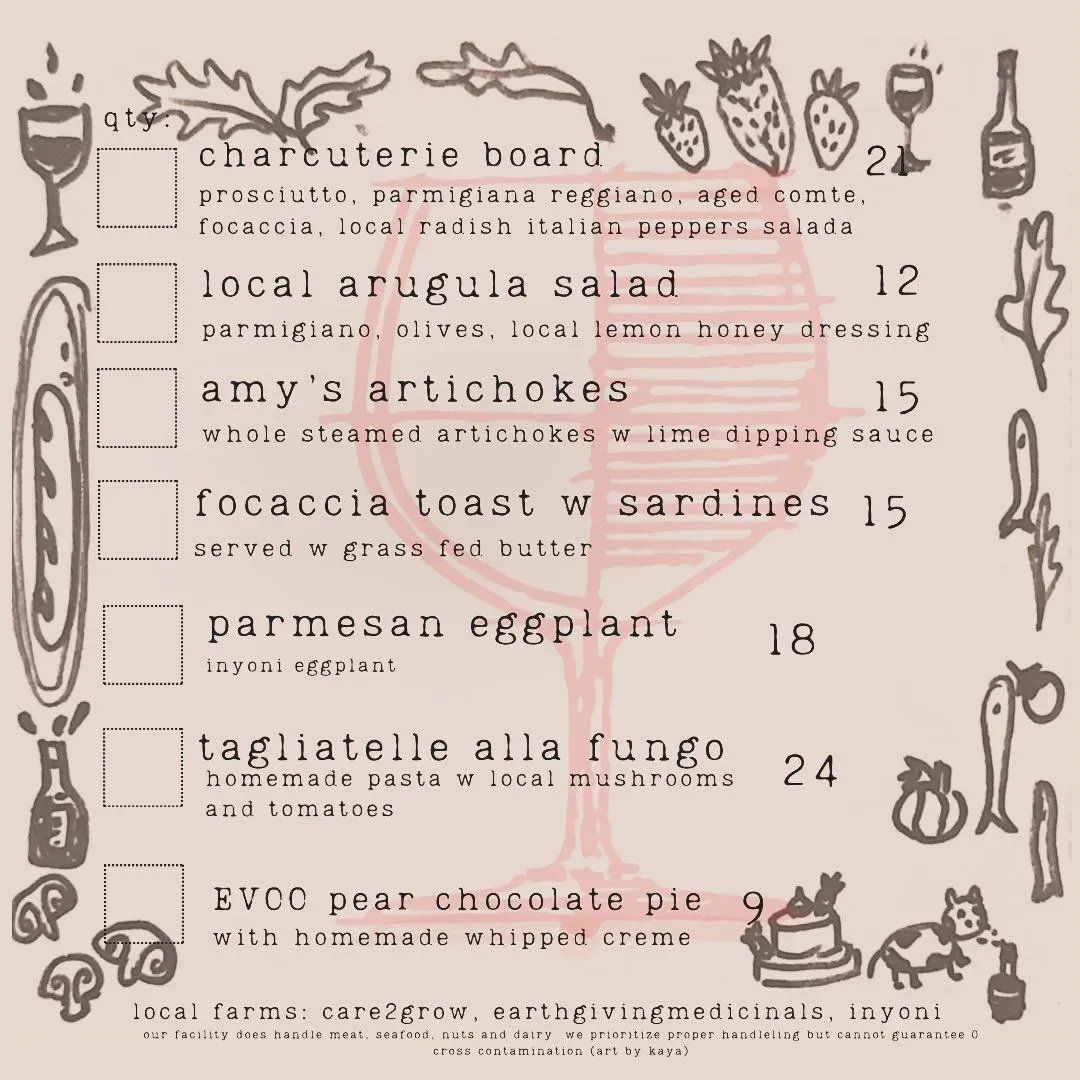 qty:
charcuterie board 21
prosciutto, parmigiana reggiano, aged comte,
focaccia, local radish italian peppers salada
local arugula salad 12
parmigiano, olives, local lemon honey dressing
amy's artichokes 15
whole steamed artichokes w lime dipping sauce
focaccia toast w sardines 15
served w grass fed butter
parmesan eggplant 18
inyoni eggplant
tagliatelle alla fungo 24
homemade pasta w local mushrooms
and tomatoes
EVOO pear chocolate pie 9
with homemade whipped creme
local farms: care2grow, earthgivingmedicinals, inyoni
our facility does handle meat, seafood, nuts and dairy we prioritize proper handleling but cannot guarantee 0
cross contamination (art by kaya)